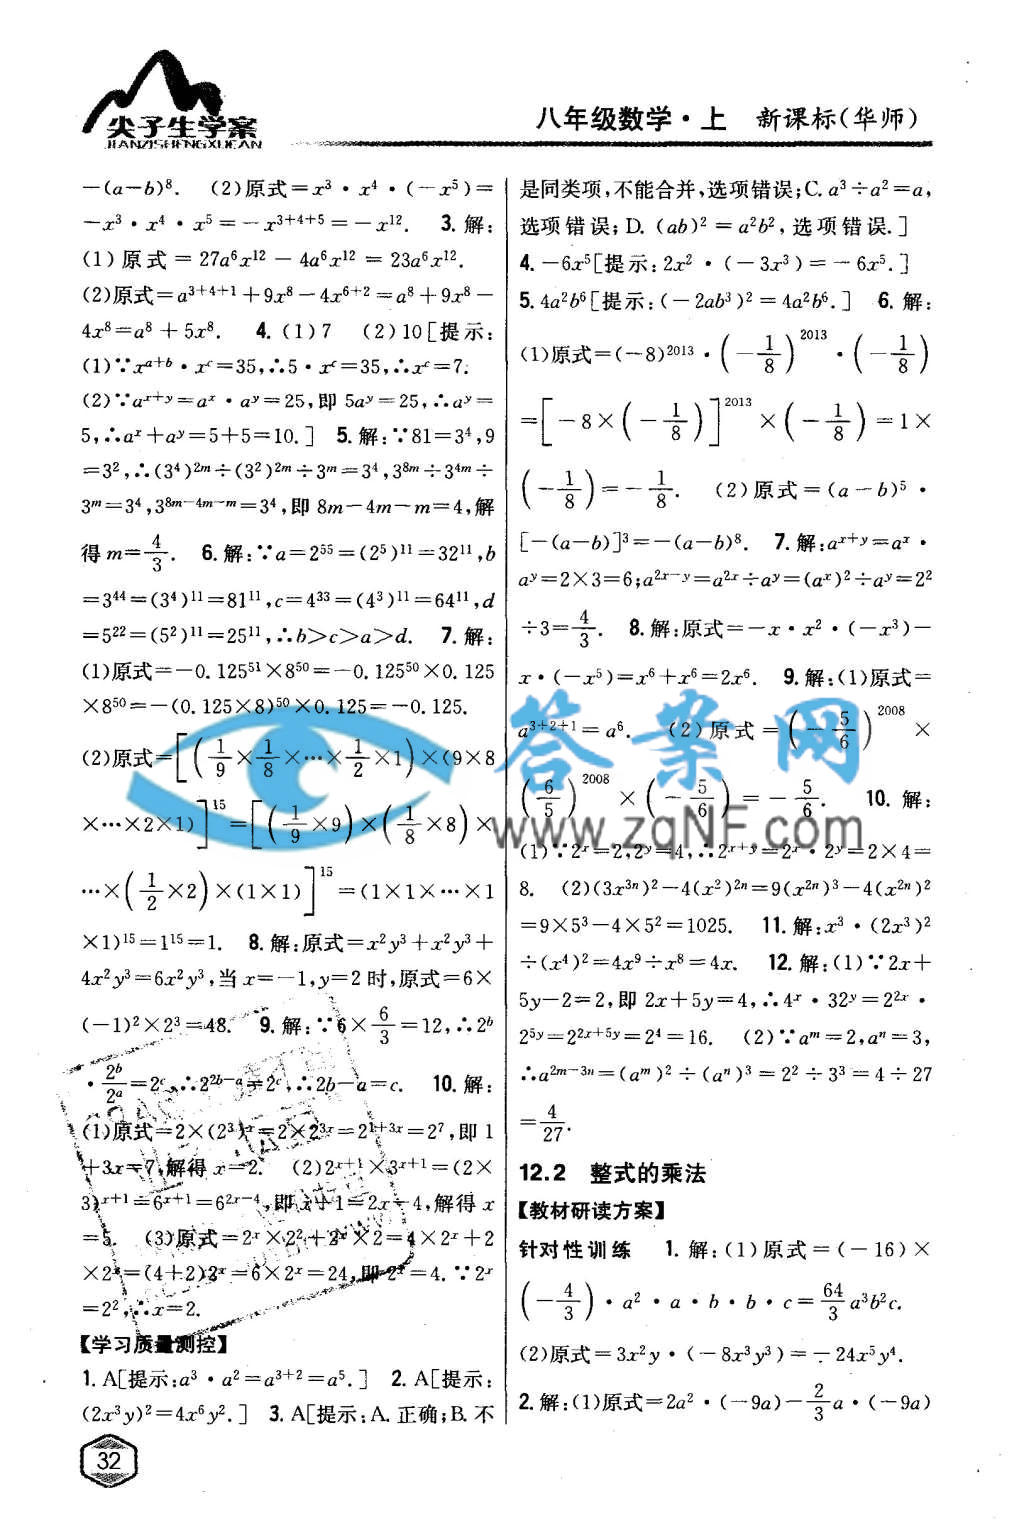 尖子生学案
JIANZISHENGXUEAN
八年级数学·上 新课标(华师)
-(a-b)⁸. (2)原式=x³·x⁴·(-x⁵)=
-x³·x⁴·x⁵=-x³⁺⁴⁺⁵=-x¹². 3.解:
(1)原式=27a⁶x¹²-4a⁶x¹²=23a⁶x¹².
(2)原式=a³⁺⁴⁺¹+9x⁸-4x⁶⁺²=a⁸+9x⁸-
4x⁸=a⁸+5x⁸. 4.(1)7 (2)10[提示:
(1)∵x^{a+b}·x^c=35,∴5·x^c=35,∴x^c=7.
(2)∵a^{x+y}=a^x·a^y=25,即5a^y=25,∴a^y=
5,∴a^x+a^y=5+5=10.] 5.解:∵81=3⁴,9
=3²,∴(3⁴)^{2m}÷(3²)^{2m}÷3^m=3⁴,3^{8m}÷3^{4m}÷
3^m=3⁴,3^{8m-4m-m}=3⁴,即8m-4m-m=4,解
得m=4/3. 6.解:∵a=2⁵⁵=(2⁵)¹¹=32¹¹,b
=3⁴⁴=(3⁴)¹¹=81¹¹,c=4³³=(4³)¹¹=64¹¹,d
=5²²=(5²)¹¹=25¹¹,∴b>c>a>d. 7.解:
(1)原式=-0.125⁵¹×8⁵⁰=-0.125⁵⁰×0.125
×8⁵⁰=-(0.125×8)⁵⁰×0.125=-0.125.
(2)原式=[(1/9×1/8×…×1/2×1)×(9×8
×…×2×1)]¹⁵=[(1/9×9)×(1/8×8)×
…×(1/2×2)×(1×1)]¹⁵=(1×1×…×1
×1)¹⁵=1¹⁵=1. 8.解:原式=x²y³+x²y³+
4x²y³=6x²y³,当x=-1,y=2时,原式=6×
(-1)²×2³=48. 9.解:∵6×6/3=12,∴2^b
·2^b/2^a=2^c,∴2^{2b-a}=2^c,∴2b-a=c. 10.解:
(1)原式=2×(2³)^x=2×2^{3x}=2^{1+3x}=2⁷,即1
+3x=7,解得x=2. (2)2^{x+1}×3^{x+1}=(2×
3)^{x+1}=6^{x+1}=6^{2x-4},即x+1=2x-4,解得x
=5. (3)原式=2^x×2²+2^x×2=4×2^x+2
×2^x=(4+2)2^x=6×2^x=24,即2^x=4.∵2^x
=2²,∴x=2.
【学习质量测控】
1.A[提示:a³·a²=a³⁺²=a⁵.] 2.A[提示:
(2x³y)²=4x⁶y².] 3.A[提示:A.正确;B.不
是同类项,不能合并,选项错误;C.a³÷a²=a,
选项错误;D.(ab)²=a²b²,选项错误.]
4.-6x⁵[提示:2x²·(-3x³)=-6x⁵.]
5.4a²b⁶[提示:(-2ab³)²=4a²b⁶.] 6.解:
(1)原式=(-8)²⁰¹³·(-1/8)²⁰¹³·(-1/8)
=[-8×(-1/8)]²⁰¹³×(-1/8)=1×
(-1/8)=-1/8. (2)原式=(a-b)⁵·
[-(a-b)]³=-(a-b)⁸. 7.解:a^{x+y}=a^x·
a^y=2×3=6;a^{2x-y}=a^{2x}÷a^y=(a^x)²÷a^y=2²
÷3=4/3. 8.解:原式=-x·x²·(-x³)-
x·(-x⁵)=x⁶+x⁶=2x⁶. 9.解:(1)原式=
a³⁺²⁺¹=a⁶. (2)原式=(-5/6)²⁰⁰⁸×
(6/5)²⁰⁰⁸×(-5/6)=-5/6. 10.解:
(1)∵2^x=2,2^y=4,∴2^{x+y}=2^x·2^y=2×4=
8. (2)(3x^{3n})²-4(x²)^{2n}=9(x^{2n})³-4(x^{2n})²
=9×5³-4×5²=1025. 11.解:x³·(2x³)²
÷(x⁴)²=4x⁹÷x⁸=4x. 12.解:(1)∵2x+
5y-2=2,即2x+5y=4,∴4^x·32^y=2^{2x}·
2^{5y}=2^{2x+5y}=2⁴=16. (2)∵a^m=2,a^n=3,
∴a^{2m-3n}=(a^m)²÷(a^n)³=2²÷3³=4÷27
=4/27.
12.2 整式的乘法
【教材研读方案】
针对性训练 1.解:(1)原式=(-16)×
(-4/3)·a²·a·b·b·c=64/3a³b²c.
(2)原式=3x²y·(-8x³y³)=-24x⁵y⁴.
2.解:(1)原式=2a²·(-9a)-2/3a·(-9a)
答案网
www.zqNF.com
32